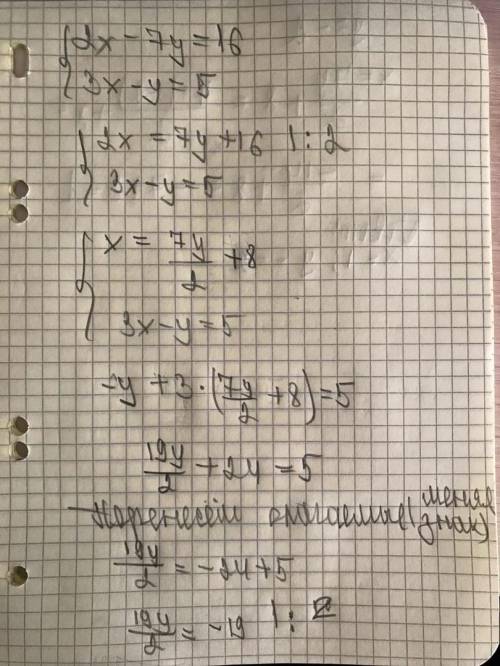 2x - 7y = 16
3x - y = 5
2x = 7y + 16 | : 2
3x - y = 5
x = 7y/2 + 8
3x - y = 5
-y + 3 · (7y/2 + 8) = 5
19y/2 + 24 = 5
Перенесём слагаемые (меняя знак)
19y/2 = -24 + 5
19y/2 = -19 | :